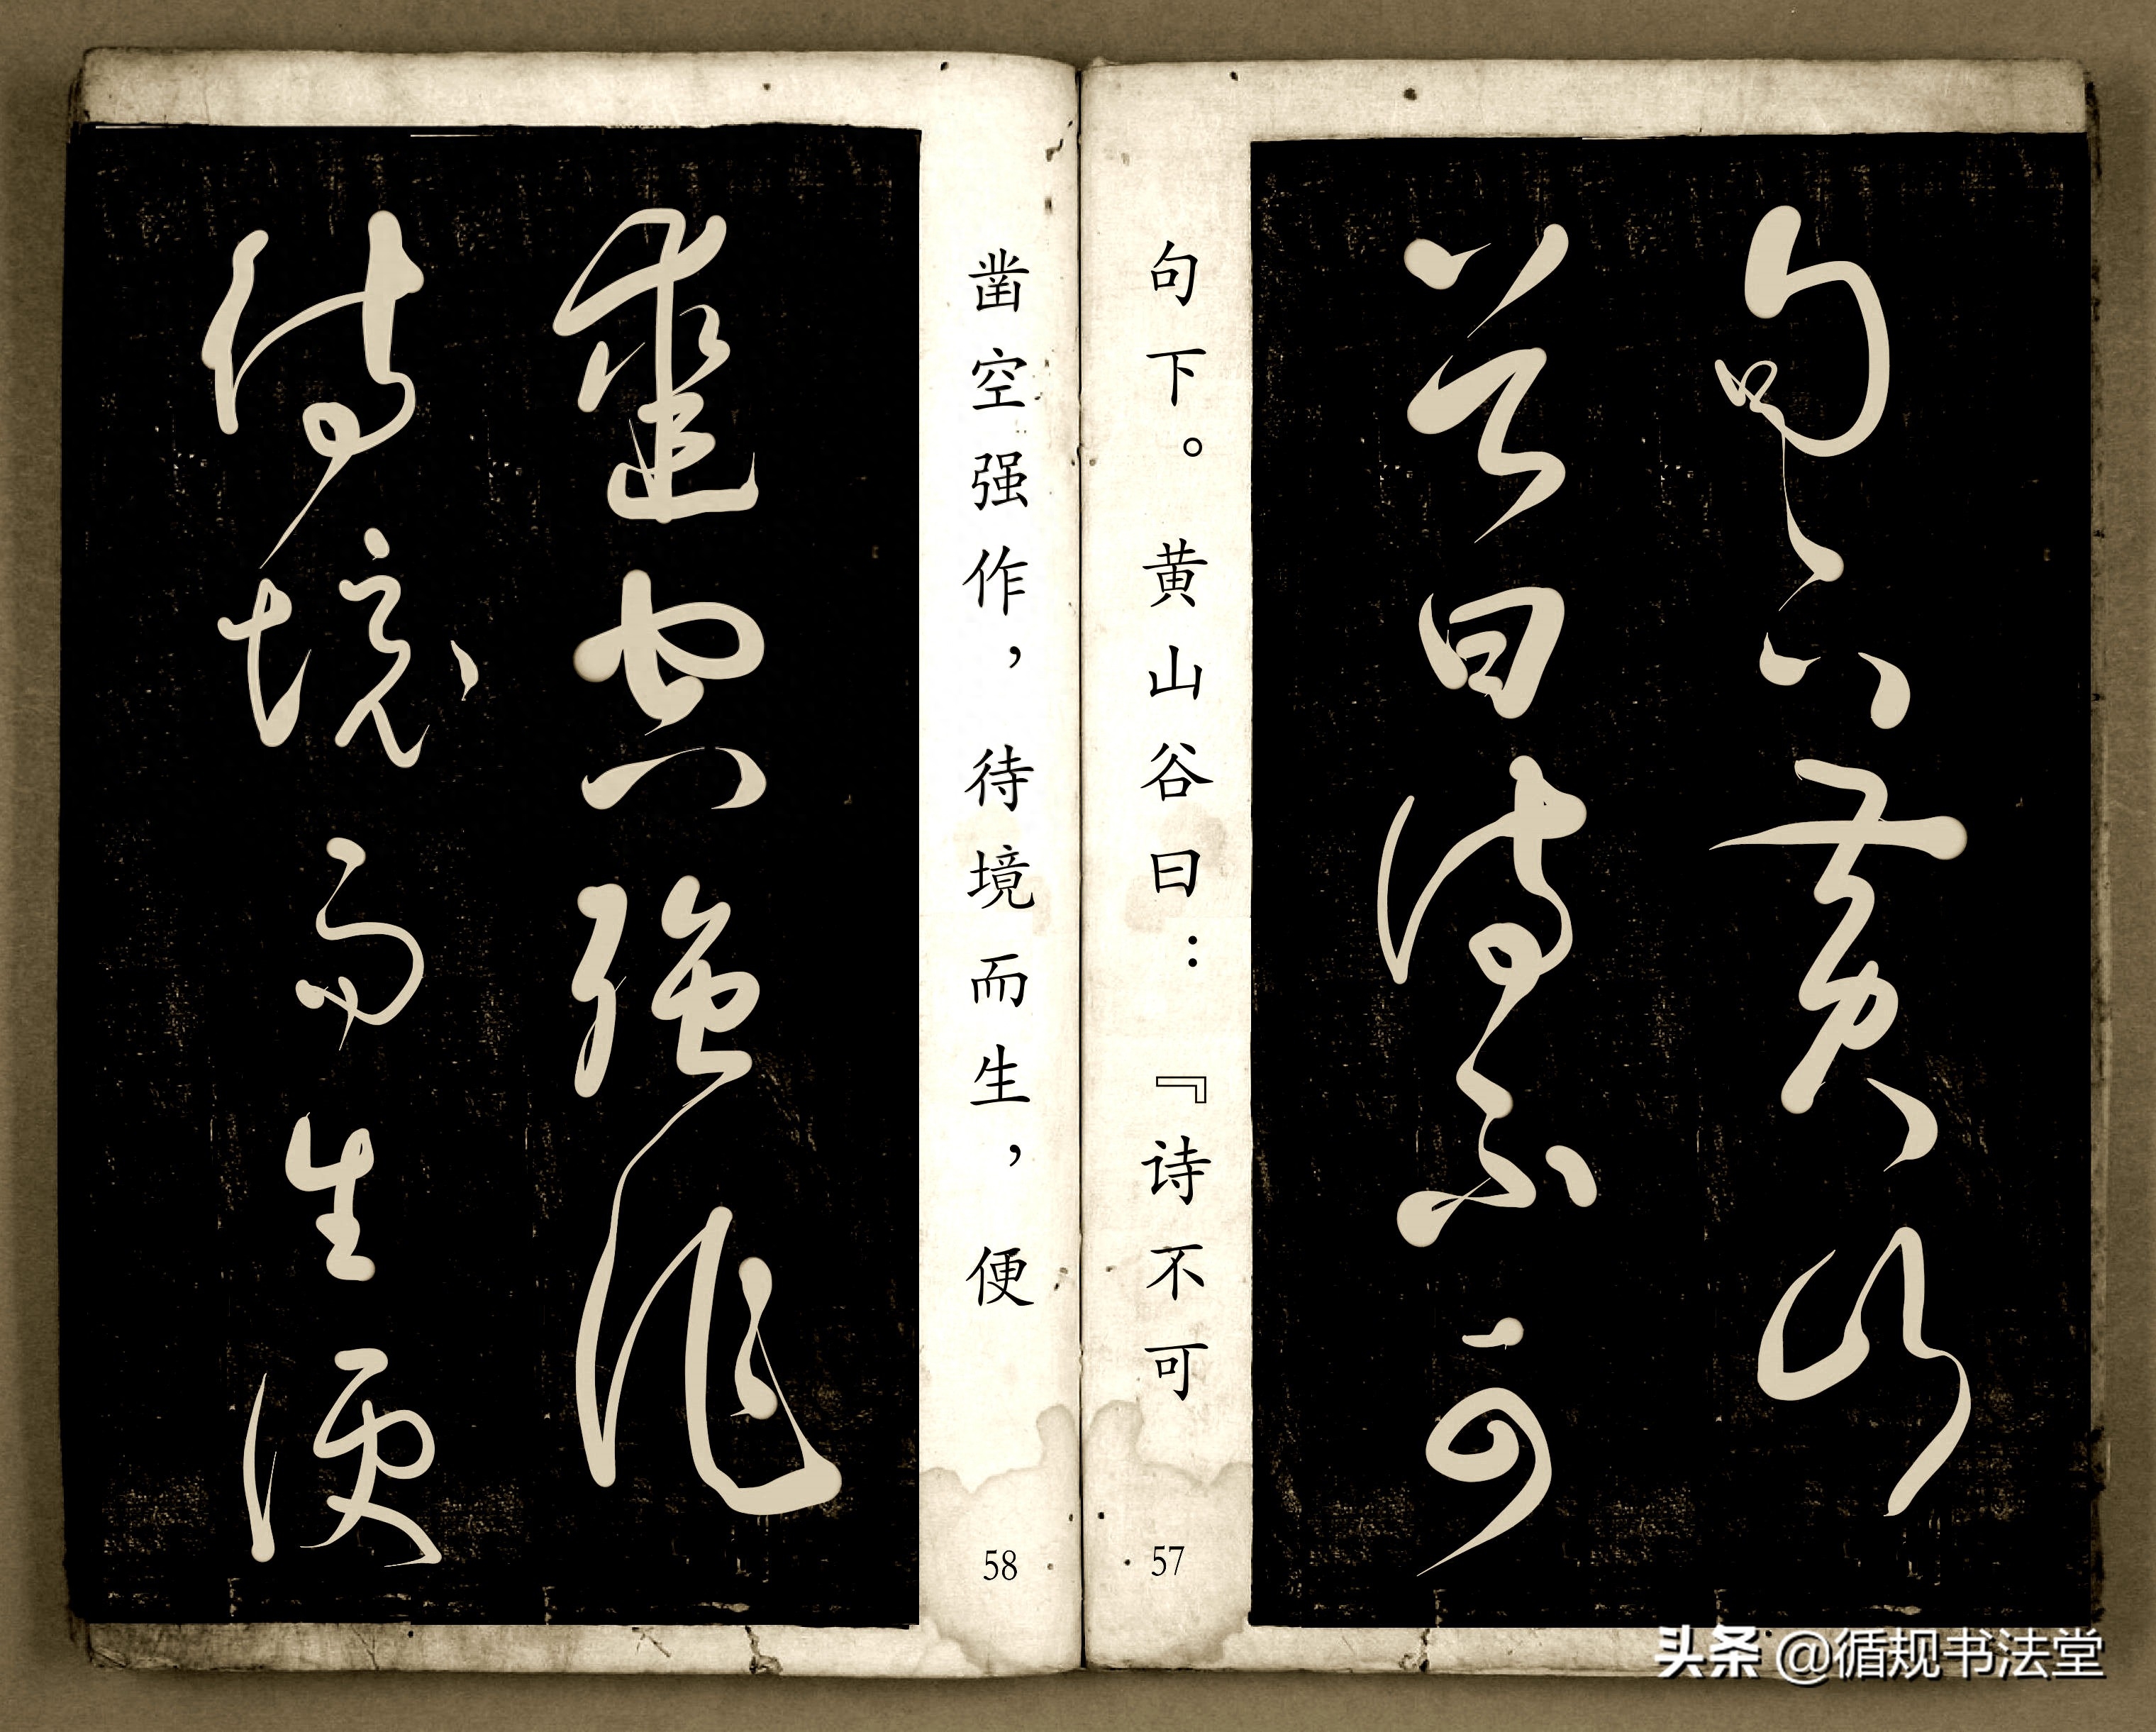 句下黄山
谷曰诗不可
句下。黄山谷曰：『诗不可
57
凿空强作
待境而生便
凿空强作，待境而生，便
58
头条 @循规书法堂